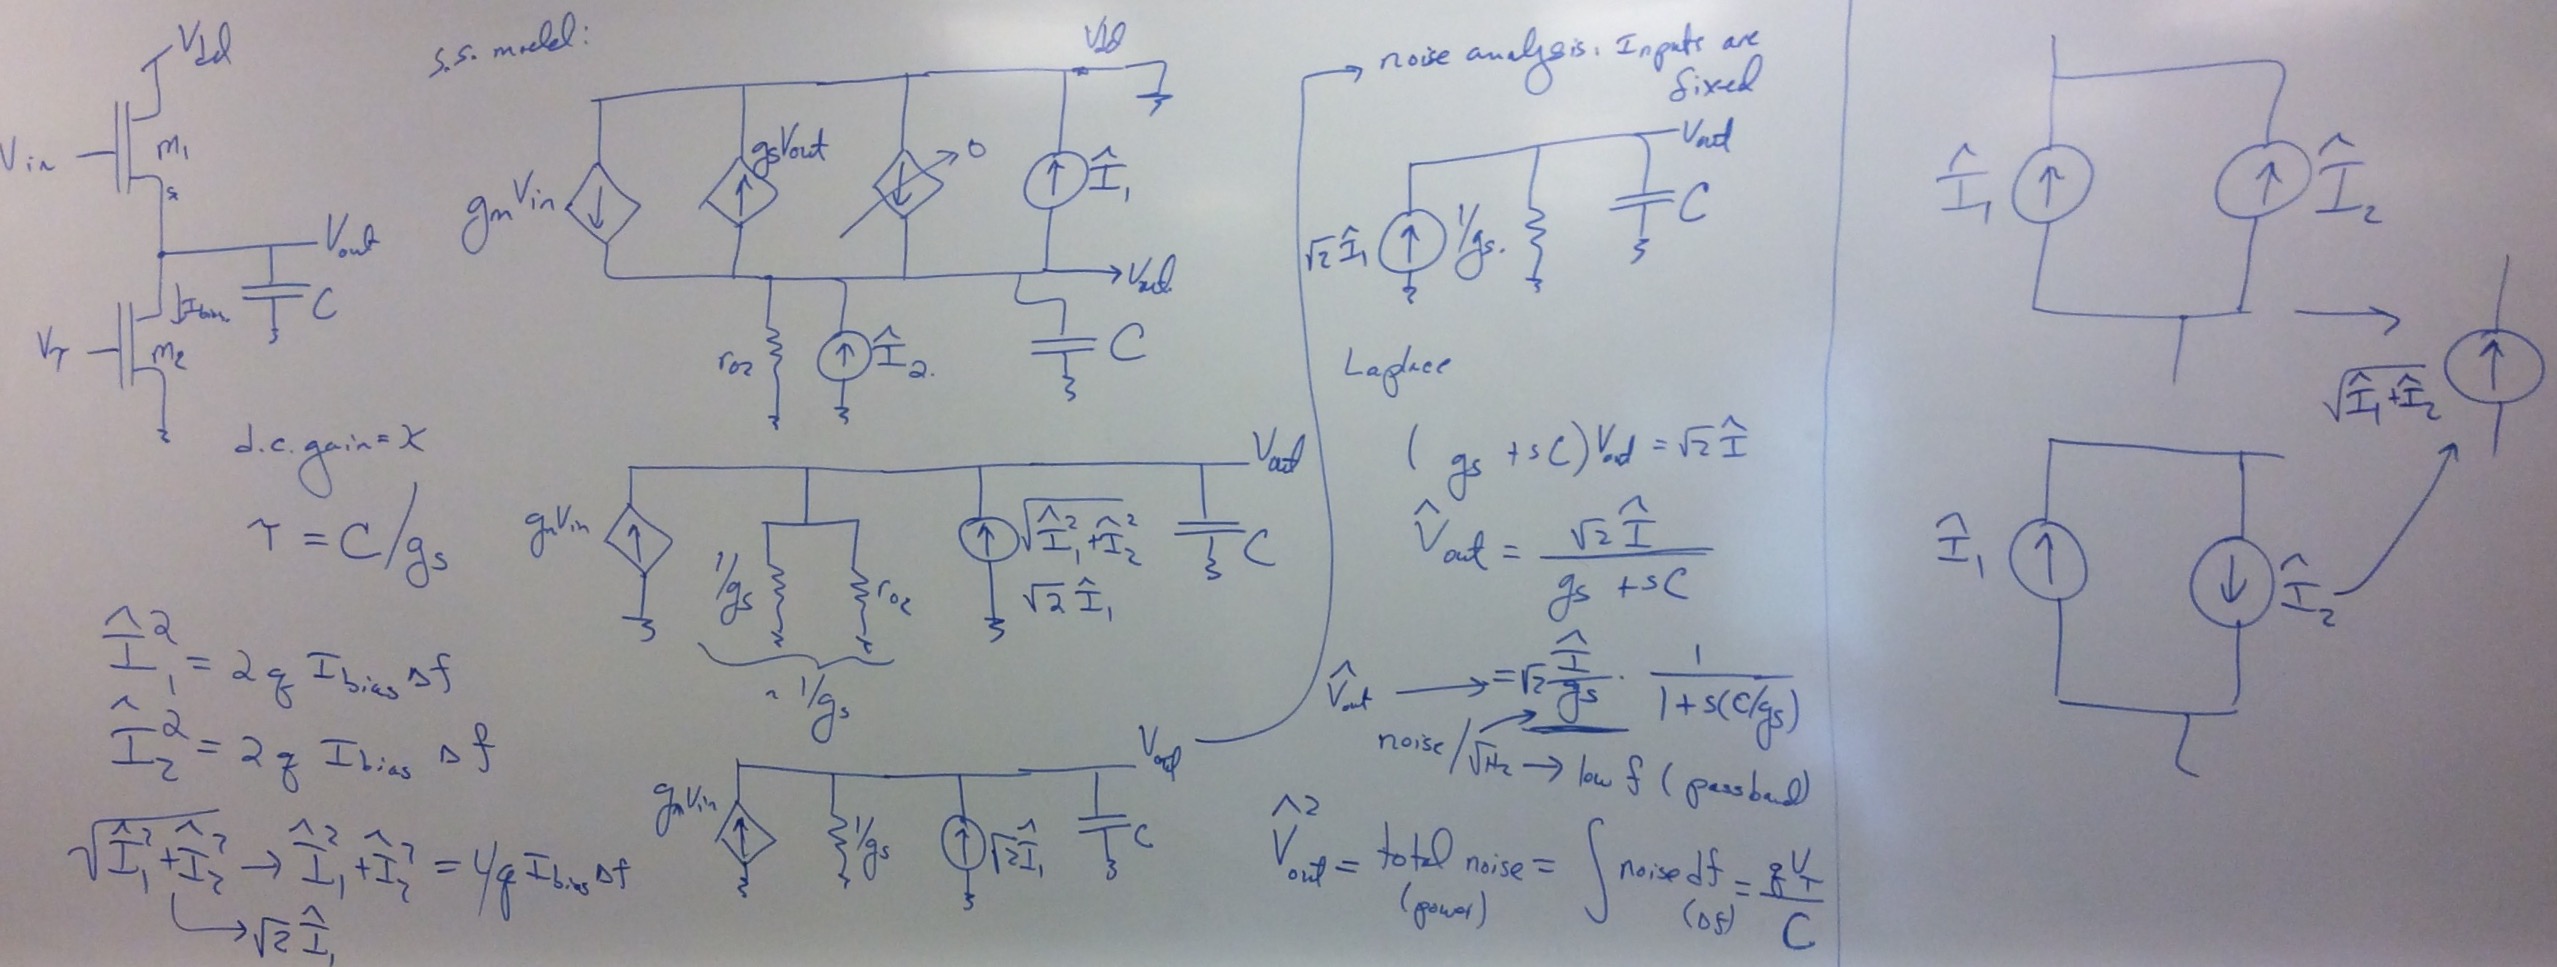 Vdd
Vin
M1
s
Vout
Ibias
C
Vτ
M2
d.c. gain = κ
τ = C/gs
Î1² = 2q Ibias Δf
Î2² = 2q Ibias Δf
√(Î1² + Î2²) → Î1² + Î2² = 4q Ibias Δf
→ √2 Î1
s.s. model:
Vdd
gmVin
gsVout
0
Î1
Vout
ro2
Î2.
C
Vout
gmVin
1/gs
ro2
√(Î1² + Î2²)
√2 Î1
C
~ 1/gs
Vout
gmVin
1/gs
√2 Î1
C
noise analysis. Inputs are
fixed
Vout
√2 Î1
1/gs.
C
Laplace
(gs + sC) Vout = √2 Î
V̂out = √2 Î / (gs + sC)
V̂out → = √2 Î/gs · 1/(1 + s(C/gs))
noise/√Hz → low f (passband)
V̂out² = total noise = ∫ noise df = qVT/C
(power)
(Δf)
Î1
Î2
√(Î1 + Î2)
Î1
Î2